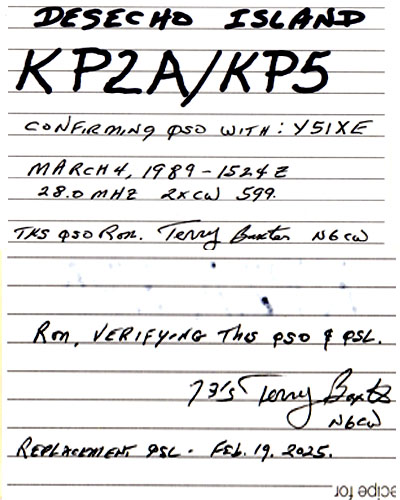 DESECHO ISLAND
KP2A/KP5
CONFIRMING QSO WITH: Y51XE
MARCH 4, 1989 - 1524 Z
28.0 MHZ 2XCW 599.
TKS QSO RON. Terry Baxter N6CW
RON, VERIFYING THIS QSO & QSL.
73'S Terry Baxter
N6CW
REPLACEMENT QSL - FEB. 19. 2025.
ecipe for